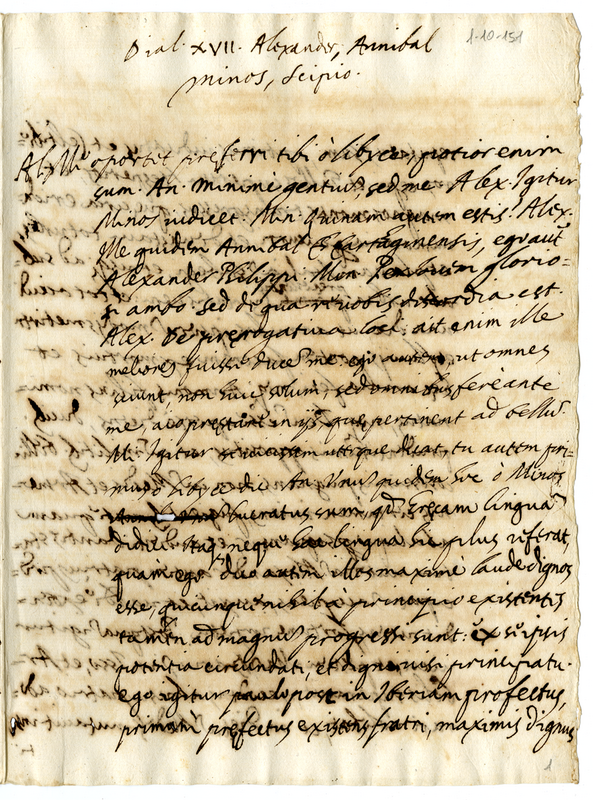 1-10-151
Dial. XVII. Alexander, Annibal
Minos, Scipio.
Al. Me oportet preferri tibi ò libyce, potior enim
sum. An. Minime gentium, sed me. Alex. Igitur
Minos iudicet. Min. Quinam autem estis? Alex.
Ille quidem Annibal Chartaginensis, ego aut
Alexander Philippi. Min. Per Iovem glorio=
si ambo. sed de qua re vobis discordia est.
Alex. De prerogatiua loci. ait enim ille
melior fuisse Duce me. ego autem, ut omnes
sciunt, non huic solum, sed omnibus ferè ante
me, aio prestare in ijs, que pertinent ad bellū.
M. Igitur utrique dicat, tu autem pri=
mus Libyce dic. An. Unū quidem hoc ò Minos
lucratus sum, qd Grecam lingua
didici. Itaq neque hac plus referat,
quam ego. duo autem illos maximè laude dignos
esse, quicunque nihil à principio existentes
tamen ad magnū progressi sunt: ex se ipsis
potentia circundati, et digni visi principatu.
ego igitur paulo post in Iberiam profectus,
primum prefectus existens fratri, maximis dignus
1